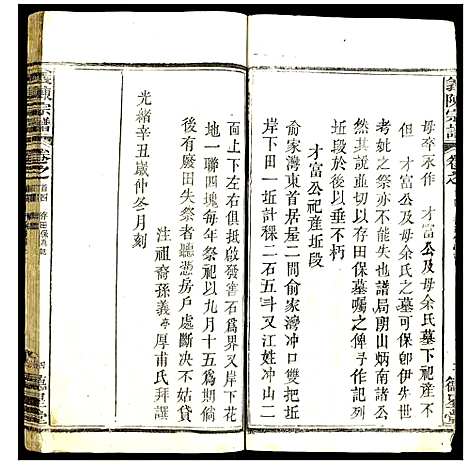 義陳宗譜
毋卒永作 才富公及母余氏墓下祀産不
致他用庶 才富公及母余氏之墓可保卽伊先
考妣之祭亦不能失也諸局朗山炳南諸公
然其説並切以存田保墓囑之後俱
坵段於後以垂不朽
才富公祀産坵段
俞家灣東首居屋二間俞家灣冲口雙把坵
岸下田一坵計稞二石五斗又江姓冲山二
面上下左右俱抵啟發誉石為界又岸下花
地一聯四塊每年祭祀以九月十五為期倘
有廢田失祭者聽憑房戶處斷决不姑貸
注祖裔孫義亭厚甫氏拜譔
光緒辛丑歲仲冬月刻
義陳宗譜
卷之
德星堂